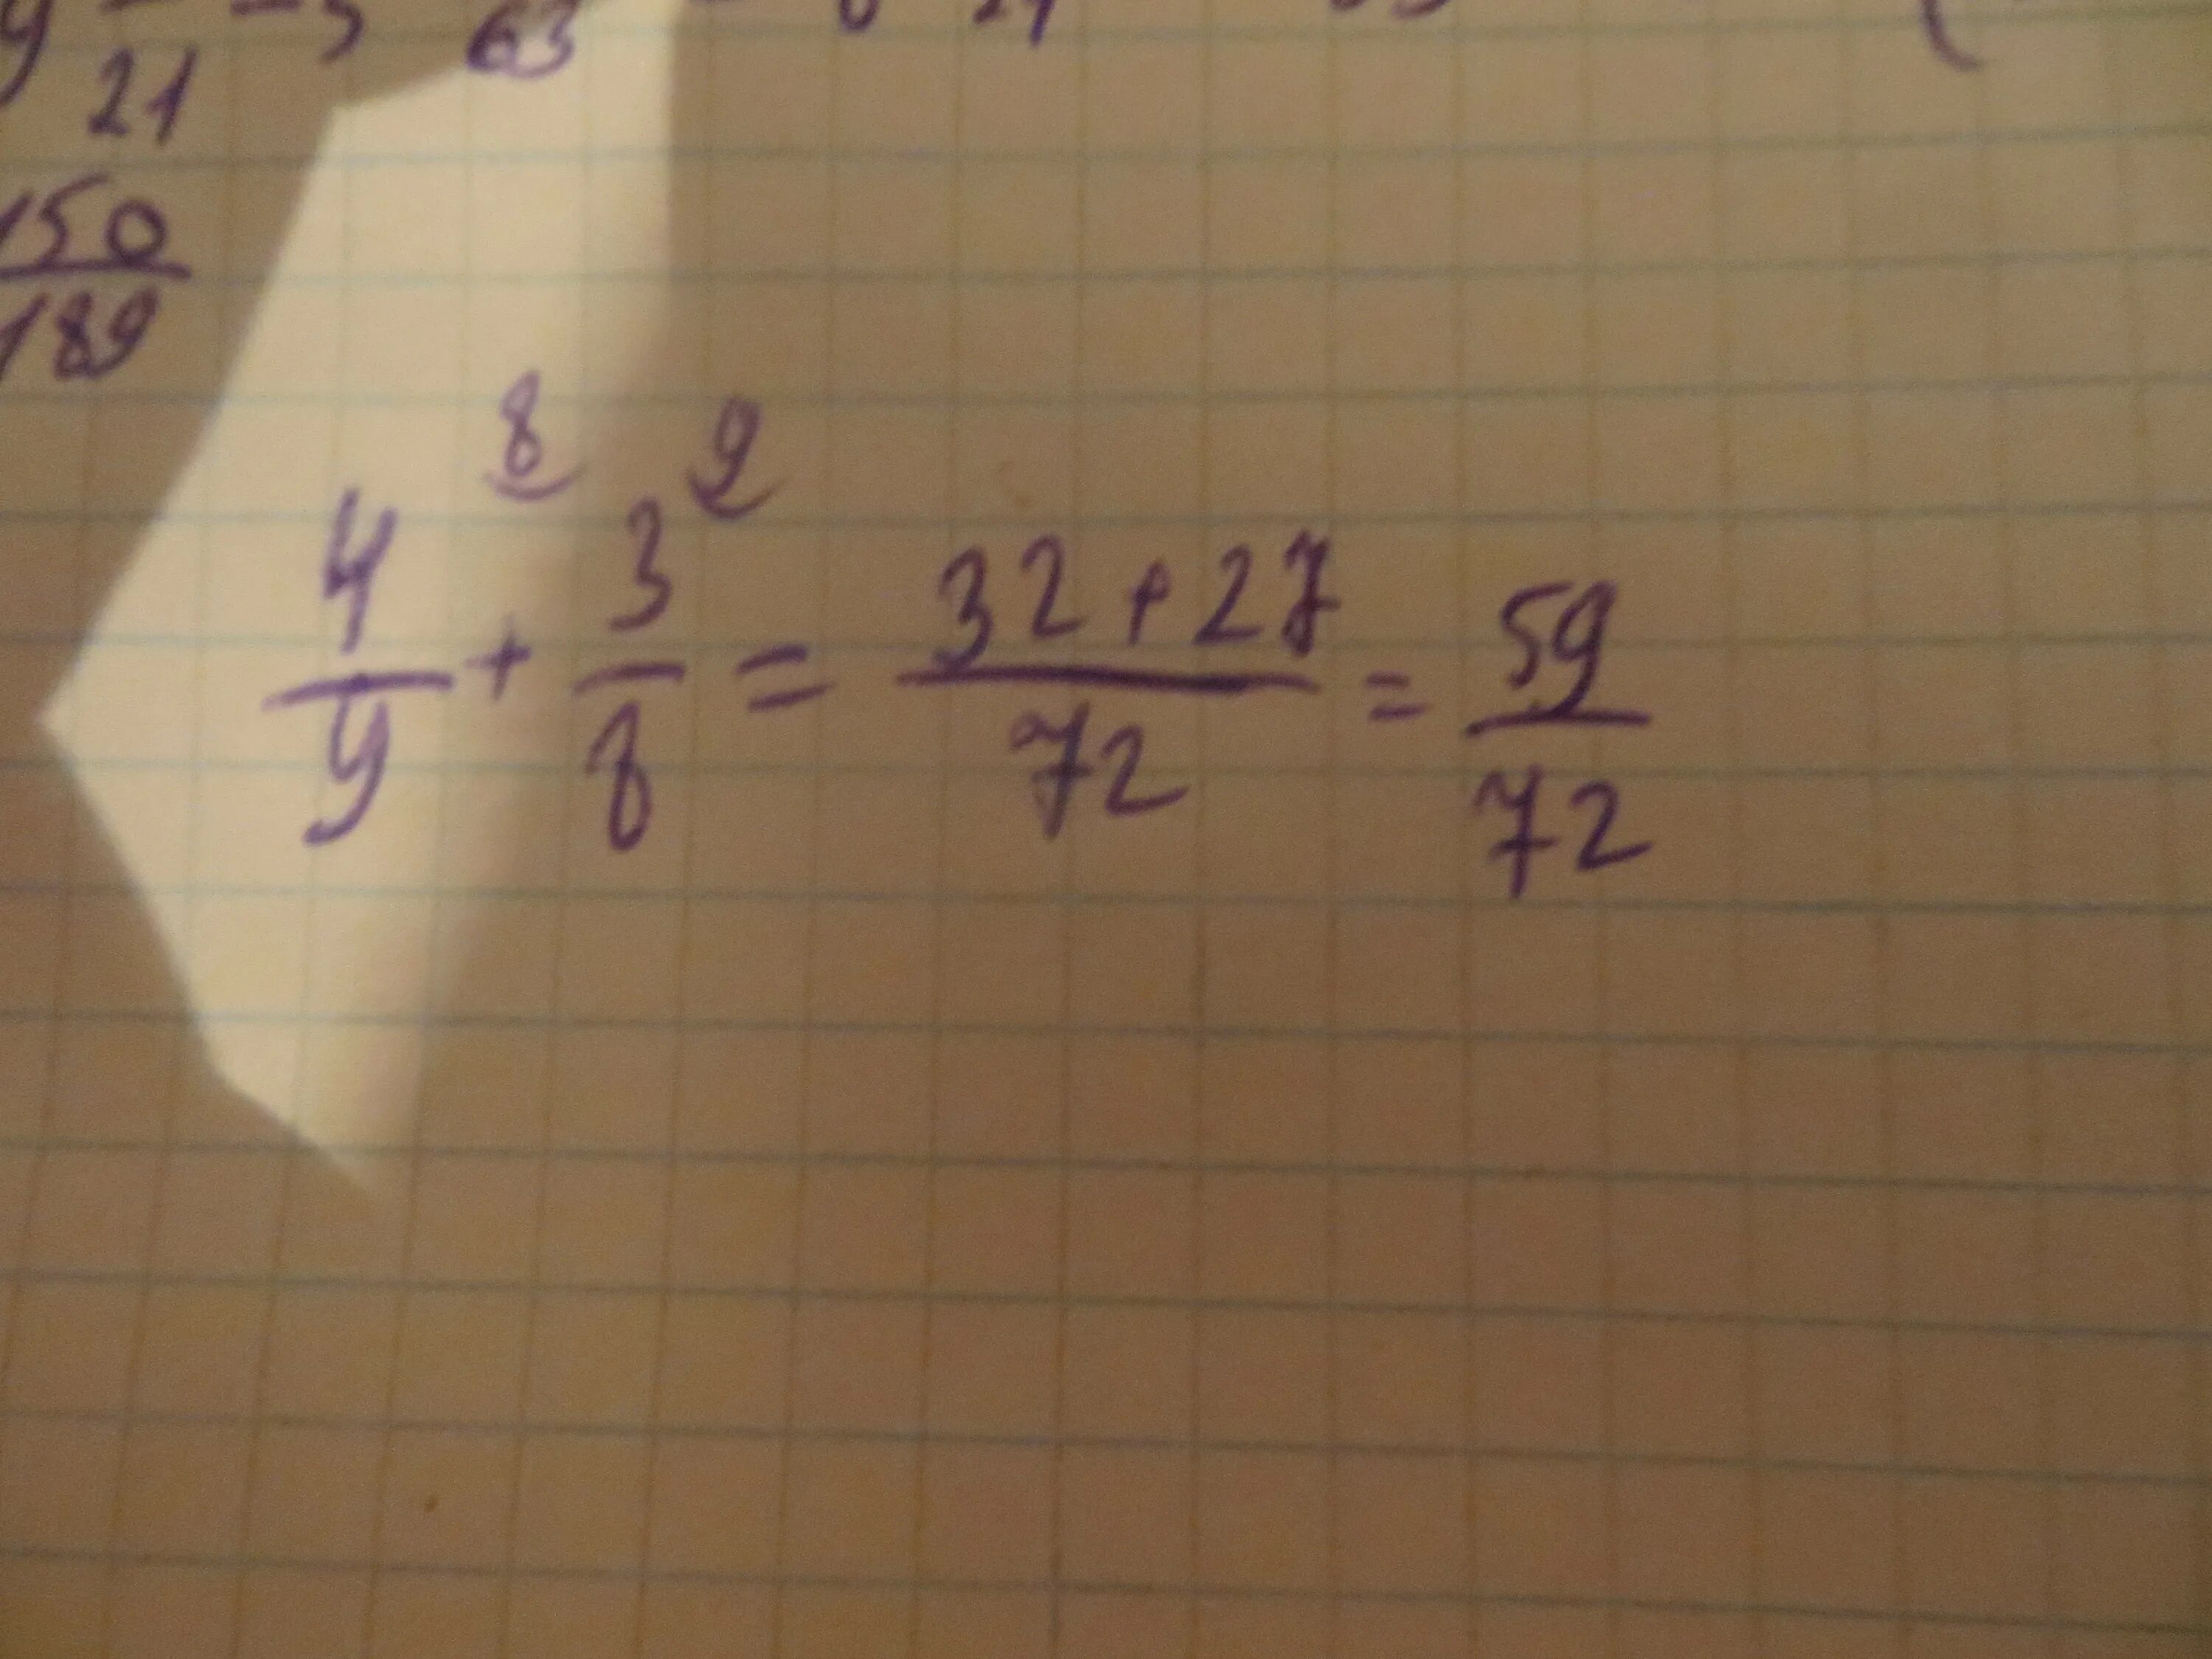 21 63
150
189
8 9
4/9 + 3/8 = 32+27/72 = 59/72